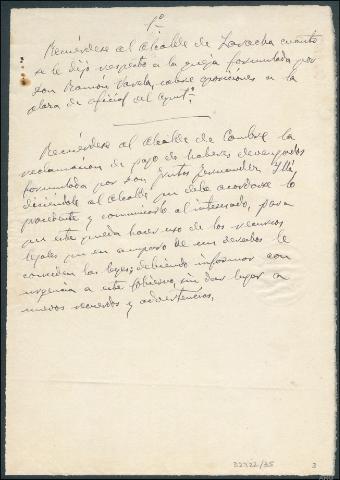 1º
Recuérdese al Alcalde de Laracha cuanto
se le dijo respecto a la queja formulada por
don Ramón Varela, sobre oposiciones a la
plaza de oficial del Aynt.º
Recuérdese al Alcalde de Cambre la
reclamacion de pago de haberes devengados
formulada por don Justos Fernandez
diciéndole al Alcalde que debe acordarse lo
procedente y comunicarlo al interesado, para
que este pueda hacer uso de los recursos
legales que en amparo de sus derechos le
conceden las leyes; debiendo informar con
urgencia a este Gobierno, sin dar lugar a
nuevos recuerdos y advertencias.
32322/35
3